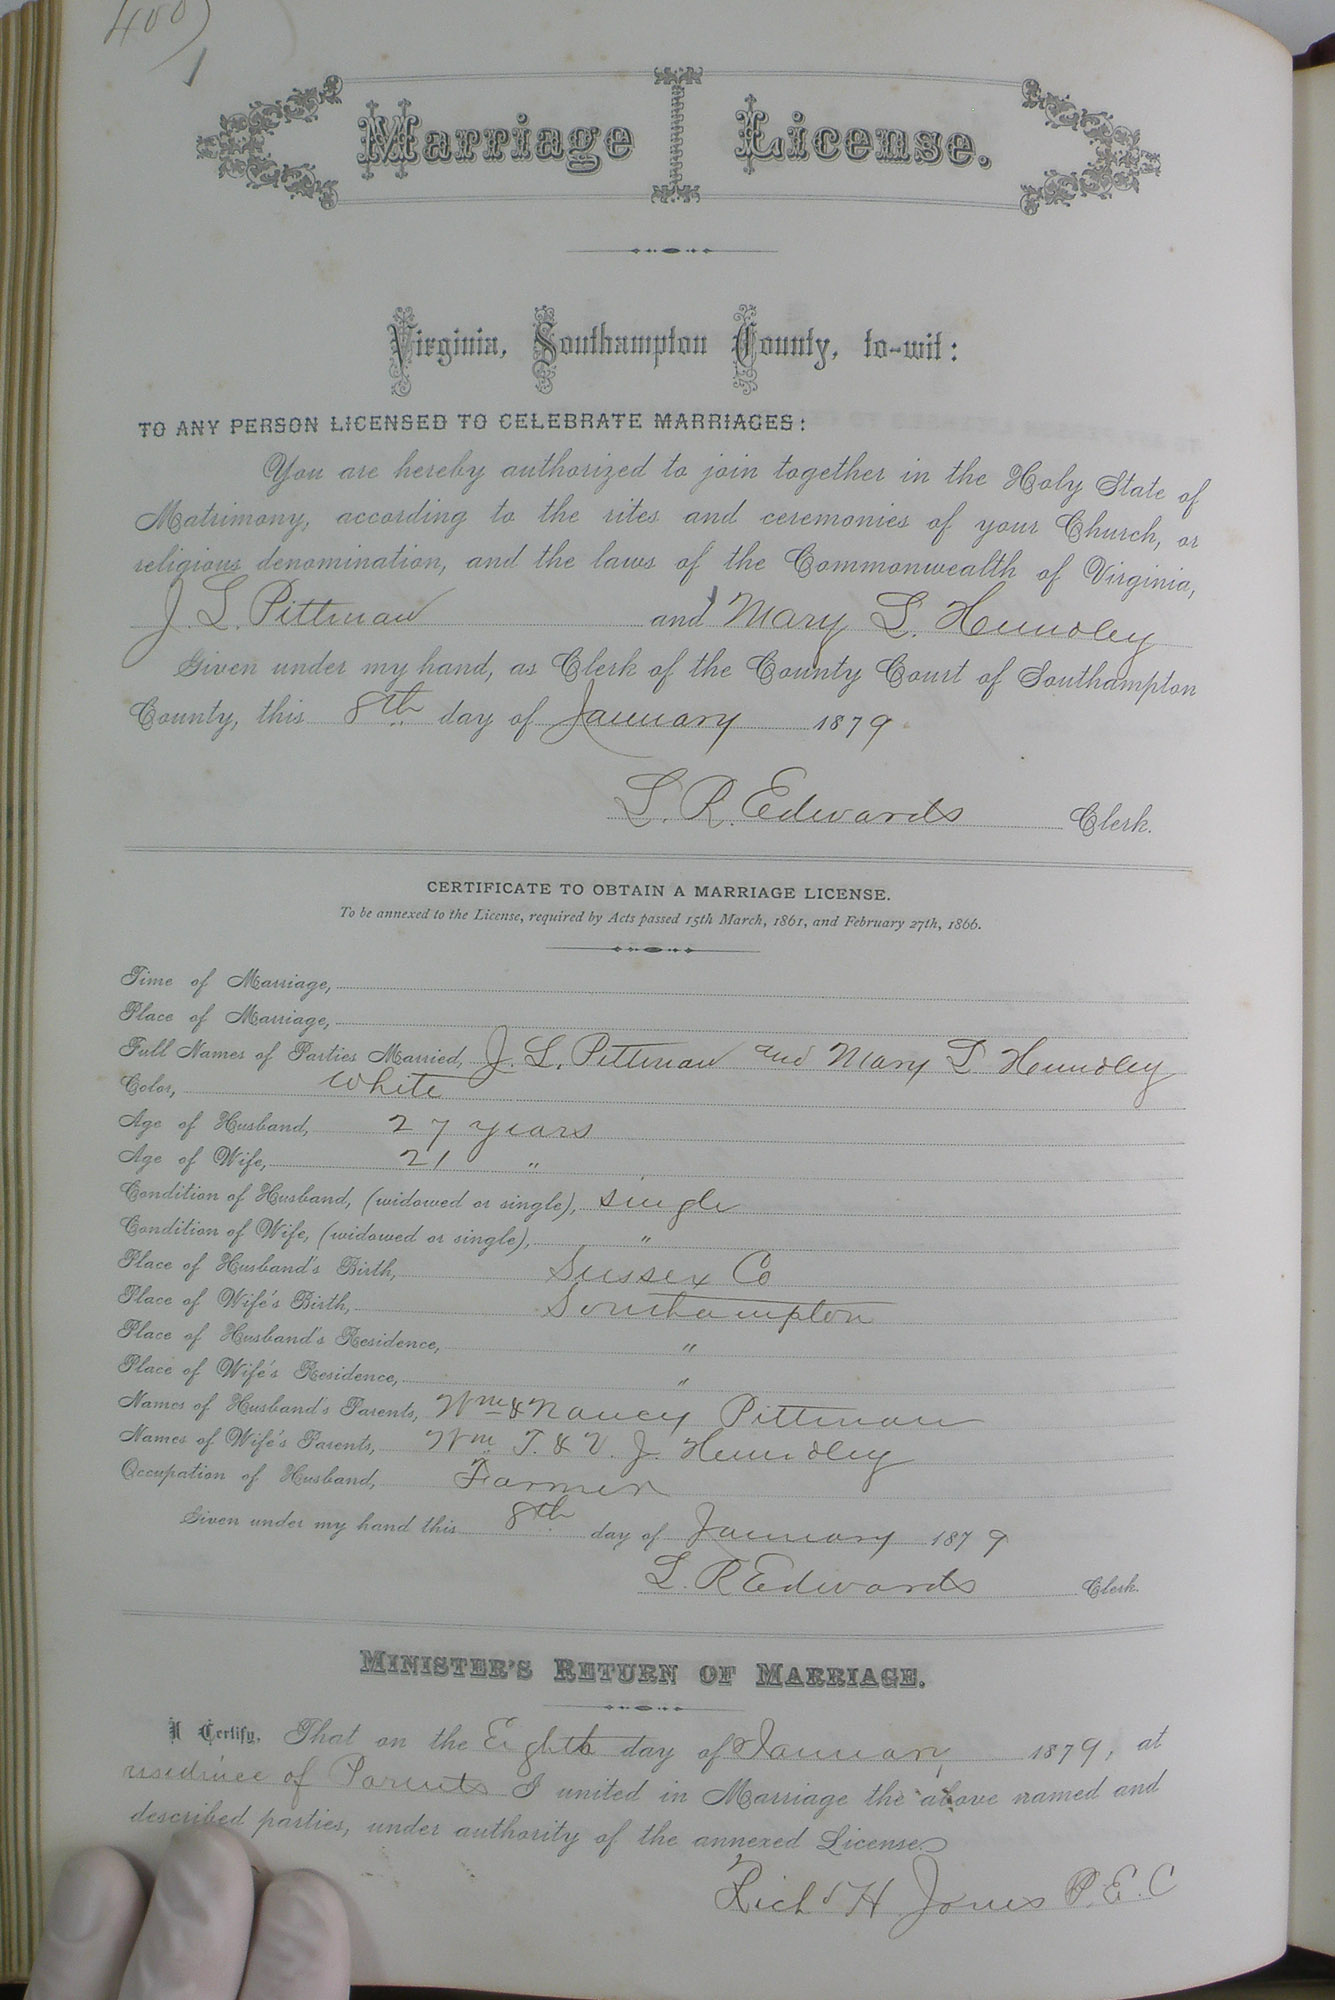 400
1
Marriage License.
Virginia, Southampton County, to-wit:
TO ANY PERSON LICENSED TO CELEBRATE MARRIAGES:
You are hereby authorized to join together in the Holy State of
Matrimony, according to the rites and ceremonies of your Church, or
religious denomination, and the laws of the Commonwealth of Virginia,
J. L. Pittman and Mary L. Hundley
Given under my hand, as Clerk of the County Court of Southampton
County, this 8th day of January 1879
L. R. Edwards Clerk.
CERTIFICATE TO OBTAIN A MARRIAGE LICENSE.
To be annexed to the License, required by Acts passed 15th March, 1861, and February 27th, 1866.
Time of Marriage,
Place of Marriage,
Full Names of Parties Married, J. L. Pittman and Mary L Hundley
Color, White
Age of Husband, 27 years
Age of Wife, 21 "
Condition of Husband, (widowed or single), single
Condition of Wife, (widowed or single), "
Place of Husband's Birth, Sussex Co
Place of Wife's Birth, Southampton
Place of Husband's Residence, "
Place of Wife's Residence, "
Names of Husband's Parents, Wm & Nancy Pittman
Names of Wife's Parents, Wm T. & V. J. Hundley
Occupation of Husband, Farmer
Given under my hand this 8th day of January 1879
L. R Edwards Clerk.
MINISTER'S RETURN OF MARRIAGE.
I Certify, That on the Eighth day of January 1879, at
residence of Parents I united in Marriage the above named and
described parties, under authority of the annexed License.
Richd H Jones P. E. C